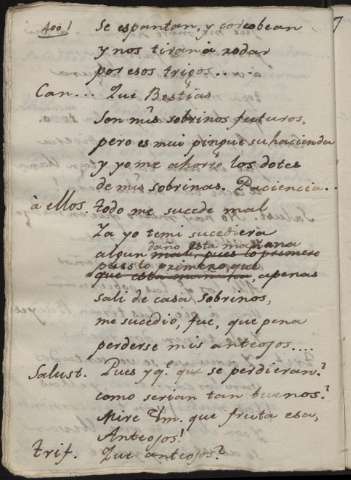 Se espantan, y corcobean
y nos tiran à rodar
por esos trigos.....
Can... Que Bestias
Son mis sobrinos futuros,
pero es mui pingue su hacienda
y yo me ahorro los dotes
de mis sobrinas. Paciencia..
à ellos. todo me sucede mal
Ya yo temi sucediera
daño esta mañana
algun mal, pues lo primero
puesto primero que
que esta mañana, apenas
sali de casa Sobrinos,
me sucedio, fue, que pena
perderse mis anteojos....
Salust. Pues y qe. que se perdieran?
como serian tan buenos?
Mire Vm. que fruta esa,
Anteojos!
Trif. Que anteojos?